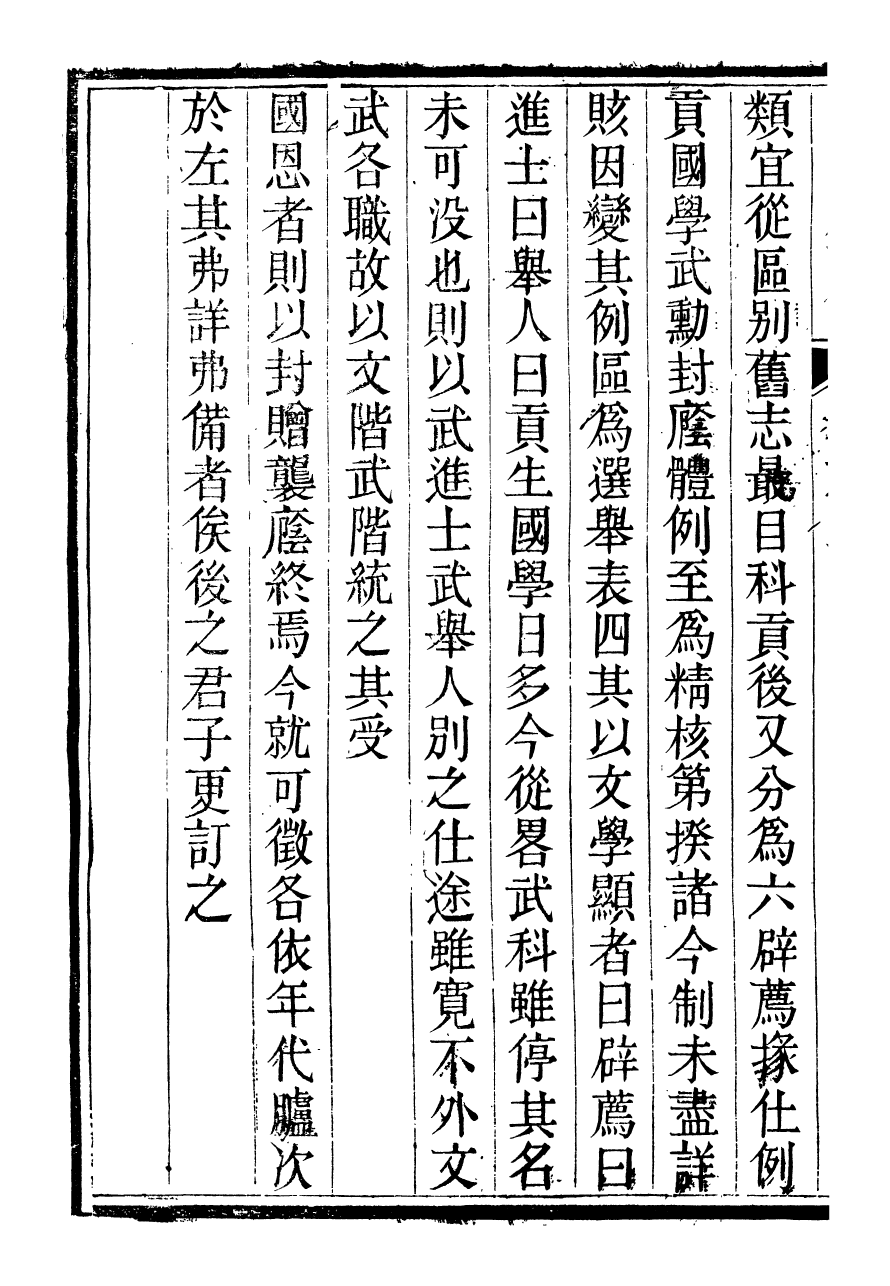 類宜從區别舊志最目科貢後又分爲六辟薦掾仕例
貢國學武勳封廕體例至爲精核第揆諸今制未盡詳
賅因變其例區爲選舉表四其以文學顯者曰辟薦曰
進士曰舉人曰貢生國學日多今從畧武科雖停其名
未可没也則以武進士武舉人别之仕途雖寛不外文
武各職故以文階武階統之其受
國恩者則以封贈襲廕終焉今就可徵各依年代臚次
於左其弗詳弗備者俟後之君子更訂之